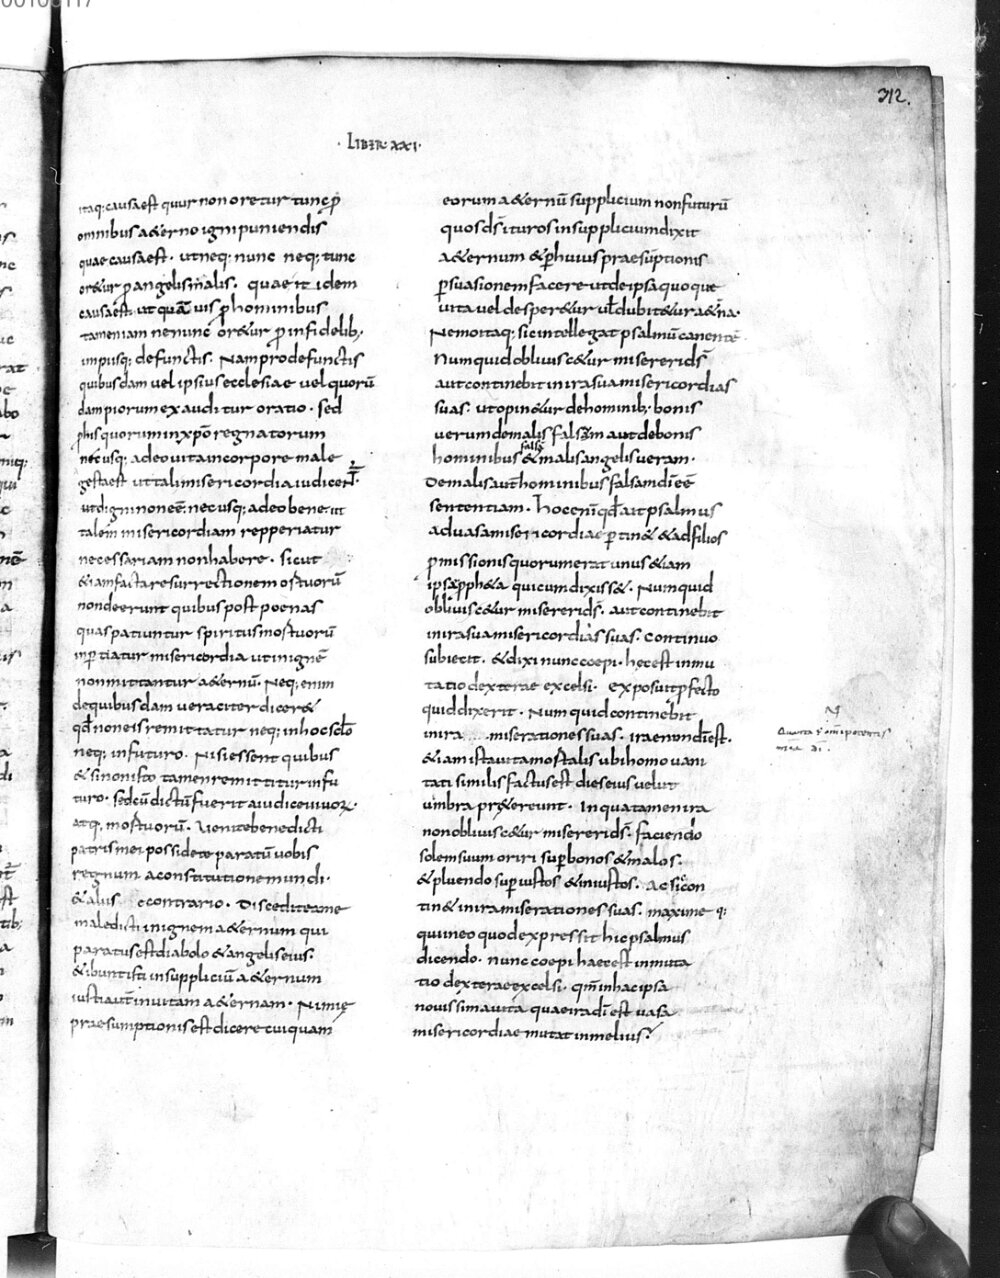 312.
· LIBER · XXI ·
itaq; causa est quur non oretur tunc p̄
omnibus a&erno igni puniendis
quae causa est · ut neq; nunc neq; tunc
or&ur p angelis malis · quae it idem
causa est ut quāuis p hominibus
tamen iam nenunc or&ur p infidelib;
impiisq; defunctis · Nam pro defunctis
quibusdam uel ipsius ecclesiae uel quorū
dam piorum exauditur oratio · sed
p his quorum in xp̄o regnatorum
necusq; adeo uita in corpore male
gesta est ut tali misericordia iudicent̄
ut digni non eē nec usq; adeo bene ut
talem misericordiam repperiatur
necessariam non habere · sicut
& iam facta resurrectionem mortuorū
non deerunt quibus post poenas
quas patiuntur spiritus mortuorū
inptiatur misericordia ut in ignē
non mittantur a&ernū · Neq; enim
de quibusdam ueraciter dicer&
qd̄ non eis remittatur neq; in hoc sc̄lo
neq; in futuro · Nisi essent quibus
& si non isto tamen remittitur in fu
turo · sed cū dictū fuerit a iudice uiuoꝝ
atq; mortuorū · Uenite benedicti
patris mei possidete paratū uobis
regnum a constitutione mundi ·
& aliis econtrario · Discedite a me
maledicti in ignem a&ernum qui
paratus est diabolo & angelis eius ·
& ibunt isti in suppliciū a&ernum
iusti aut̄ in uitam a&ernam · Nimię
praesumptionis est dicere cuiquam
eorum a&ernū supplicium non futurū
quos d̄s ituros in supplicium dixit
a&ernum & p huius praesūptionis
psuasionem facere ut de ipsa quoque
uita uel desper&ur ul̄ dubit&ur a&na ·
Nemo itaq; sic intellegat psalmū canentē
Numquid obliuisc&ur misereri d̄s
aut continebit in ira sua misericordias
suas · ut opin&ur de hominib; bonis
uerum de malis falsam aut de bonis
falsā
hominibus & malis angelis ueram ·
De malis aut̄ hominibus falsam di eē
sententiam · hoc enī qd̄ ait psalmus
ad uasa misericordiae ptin& & ad filios
pmissionis quorum erat unus & iam
ipse pph&a qui cum dixiss& · Numquid
obliuisc&ur misereri d̄s · aut continebit
in ira sua misericordias suas · continuo
subiecit · & dixi nunc coepi · hęc est inmu
tatio dexterae excelsi · exposuit pfecto
quid dixerit · Numquid continebit
in ira miserationes suas · ira enim dī est ·
& iam ista uita mortalis ubi homo uani
tati similis factus est dies eius uelut
umbra pr&ereunt · In qua tamen ira
non obliuisc&ur misereri d̄s · faciendo
solem suum oriri sup bonos & malos ·
& pluendo sup iustos & iniustos · ac sic con
tin& in ira miserationes suas · maxime q;
qui in eo quod expressit hic psalmus
dicendo · nunc coepi haec est inmuta
tio dexterae excelsi · qm̄ in hac ipsa
nouissima uita quae ira dī est uasa
misericordiae mutat in melius ·
N
Quanta s̄ omipotentis
mīa dī ·